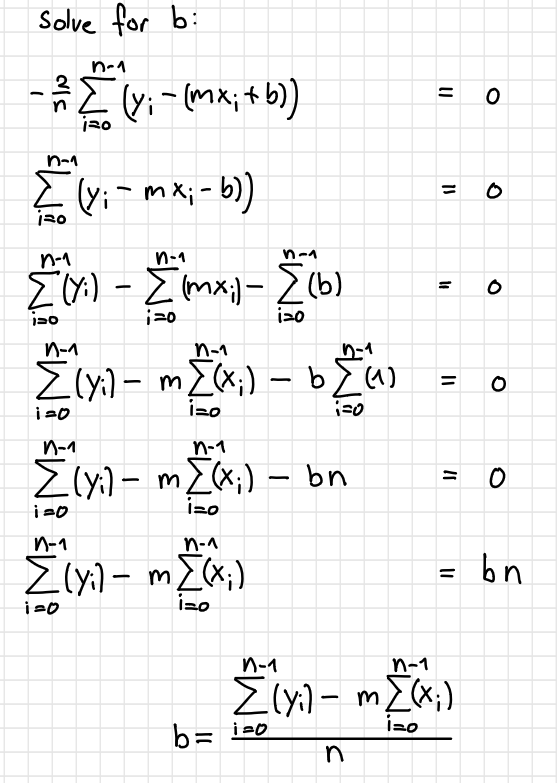 Solve for b:
-2/n ∑_{i=0}^{n-1} (y_i - (mx_i + b)) = 0
∑_{i=0}^{n-1} (y_i - mx_i - b)) = 0
∑_{i=0}^{n-1} (y_i) - ∑_{i=0}^{n-1} (mx_i) - ∑_{i=0}^{n-1} (b) = 0
∑_{i=0}^{n-1} (y_i) - m ∑_{i=0}^{n-1} (x_i) - b ∑_{i=0}^{n-1} (1) = 0
∑_{i=0}^{n-1} (y_i) - m ∑_{i=0}^{n-1} (x_i) - bn = 0
∑_{i=0}^{n-1} (y_i) - m ∑_{i=0}^{n-1} (x_i) = bn
b = (∑_{i=0}^{n-1} (y_i) - m ∑_{i=0}^{n-1} (x_i)) / n